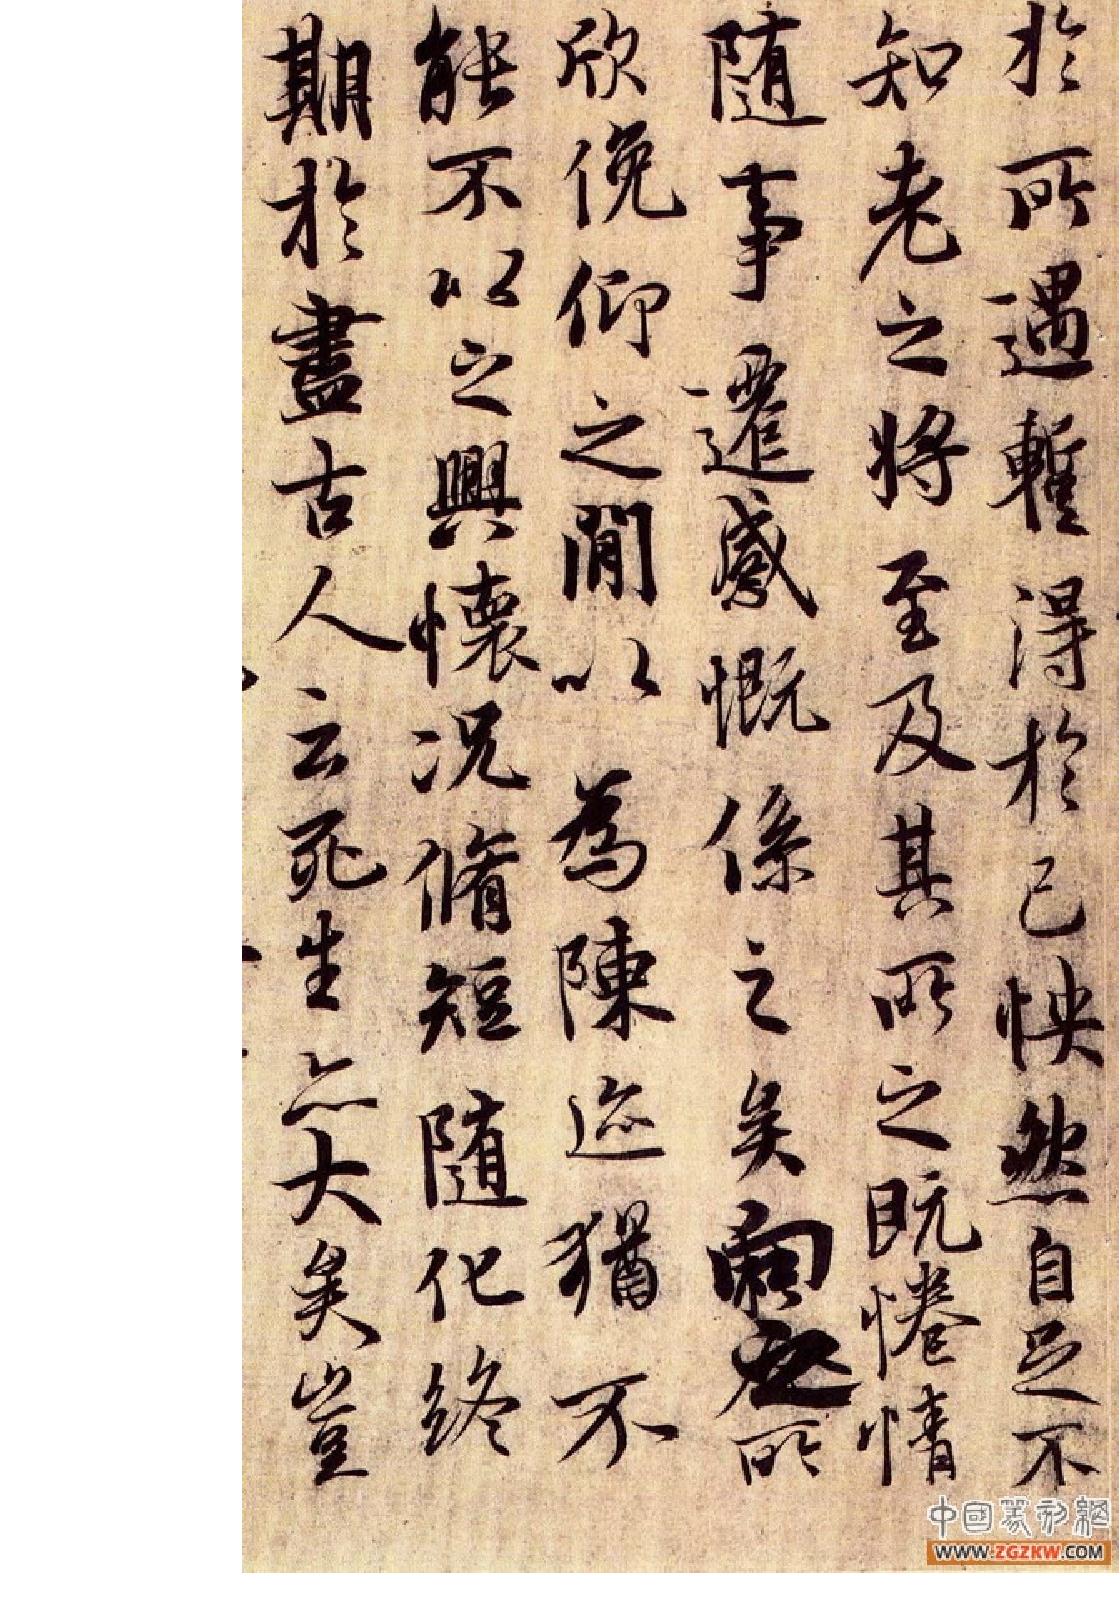 於所遇暫得於己怏然自足不
知老之將至及其所之既惓情
隨事遷感慨係之矣向之所
欣俛仰之閒以為陳迹猶不
能不以之興懷況脩短隨化終
期於盡古人云死生亦大矣豈
中國篆刻網
WWW.ZGZKW.COM